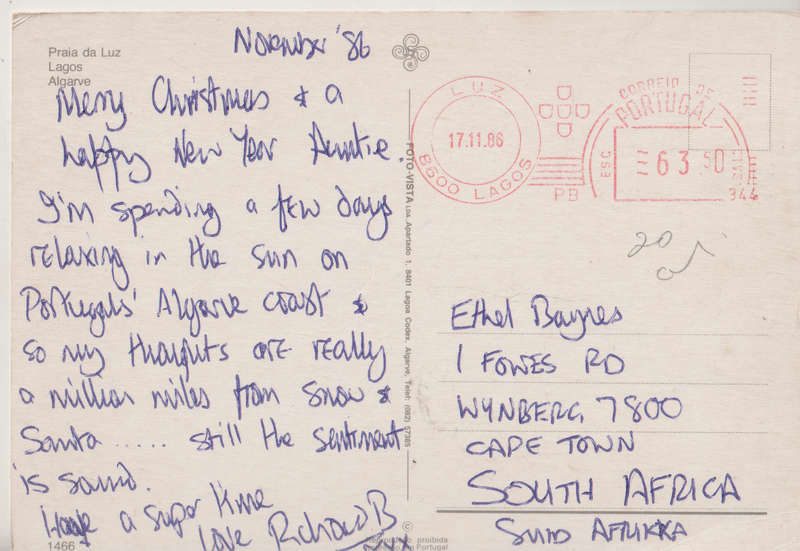 Praia da Luz
Lagos
Algarve
November '86
Merry Christmas & a
happy New Year Auntie.
I'm spending a few days
relaxing in the sun on
Portugals' Algarve coast &
so my thoughts are really
a million miles from snow &
Santa ..... still the sentiment
is sound.
Have a super time
love Richard B
xxx
1466
FOTO-VISTA Lda. Apartado 1, 8401 Lagoa Codex, Algarve, Telef: (082) 57365
LUZ
17.11.86
8600 LAGOS
PB
CORREIO DE
PORTUGAL
ESC
=63.50
344
20
Ethel Baynes
1 FOWES RD
WYNBERG, 7800
CAPE TOWN
SOUTH AFRICA
SUID AFRIKKA
© proibida
Portugal